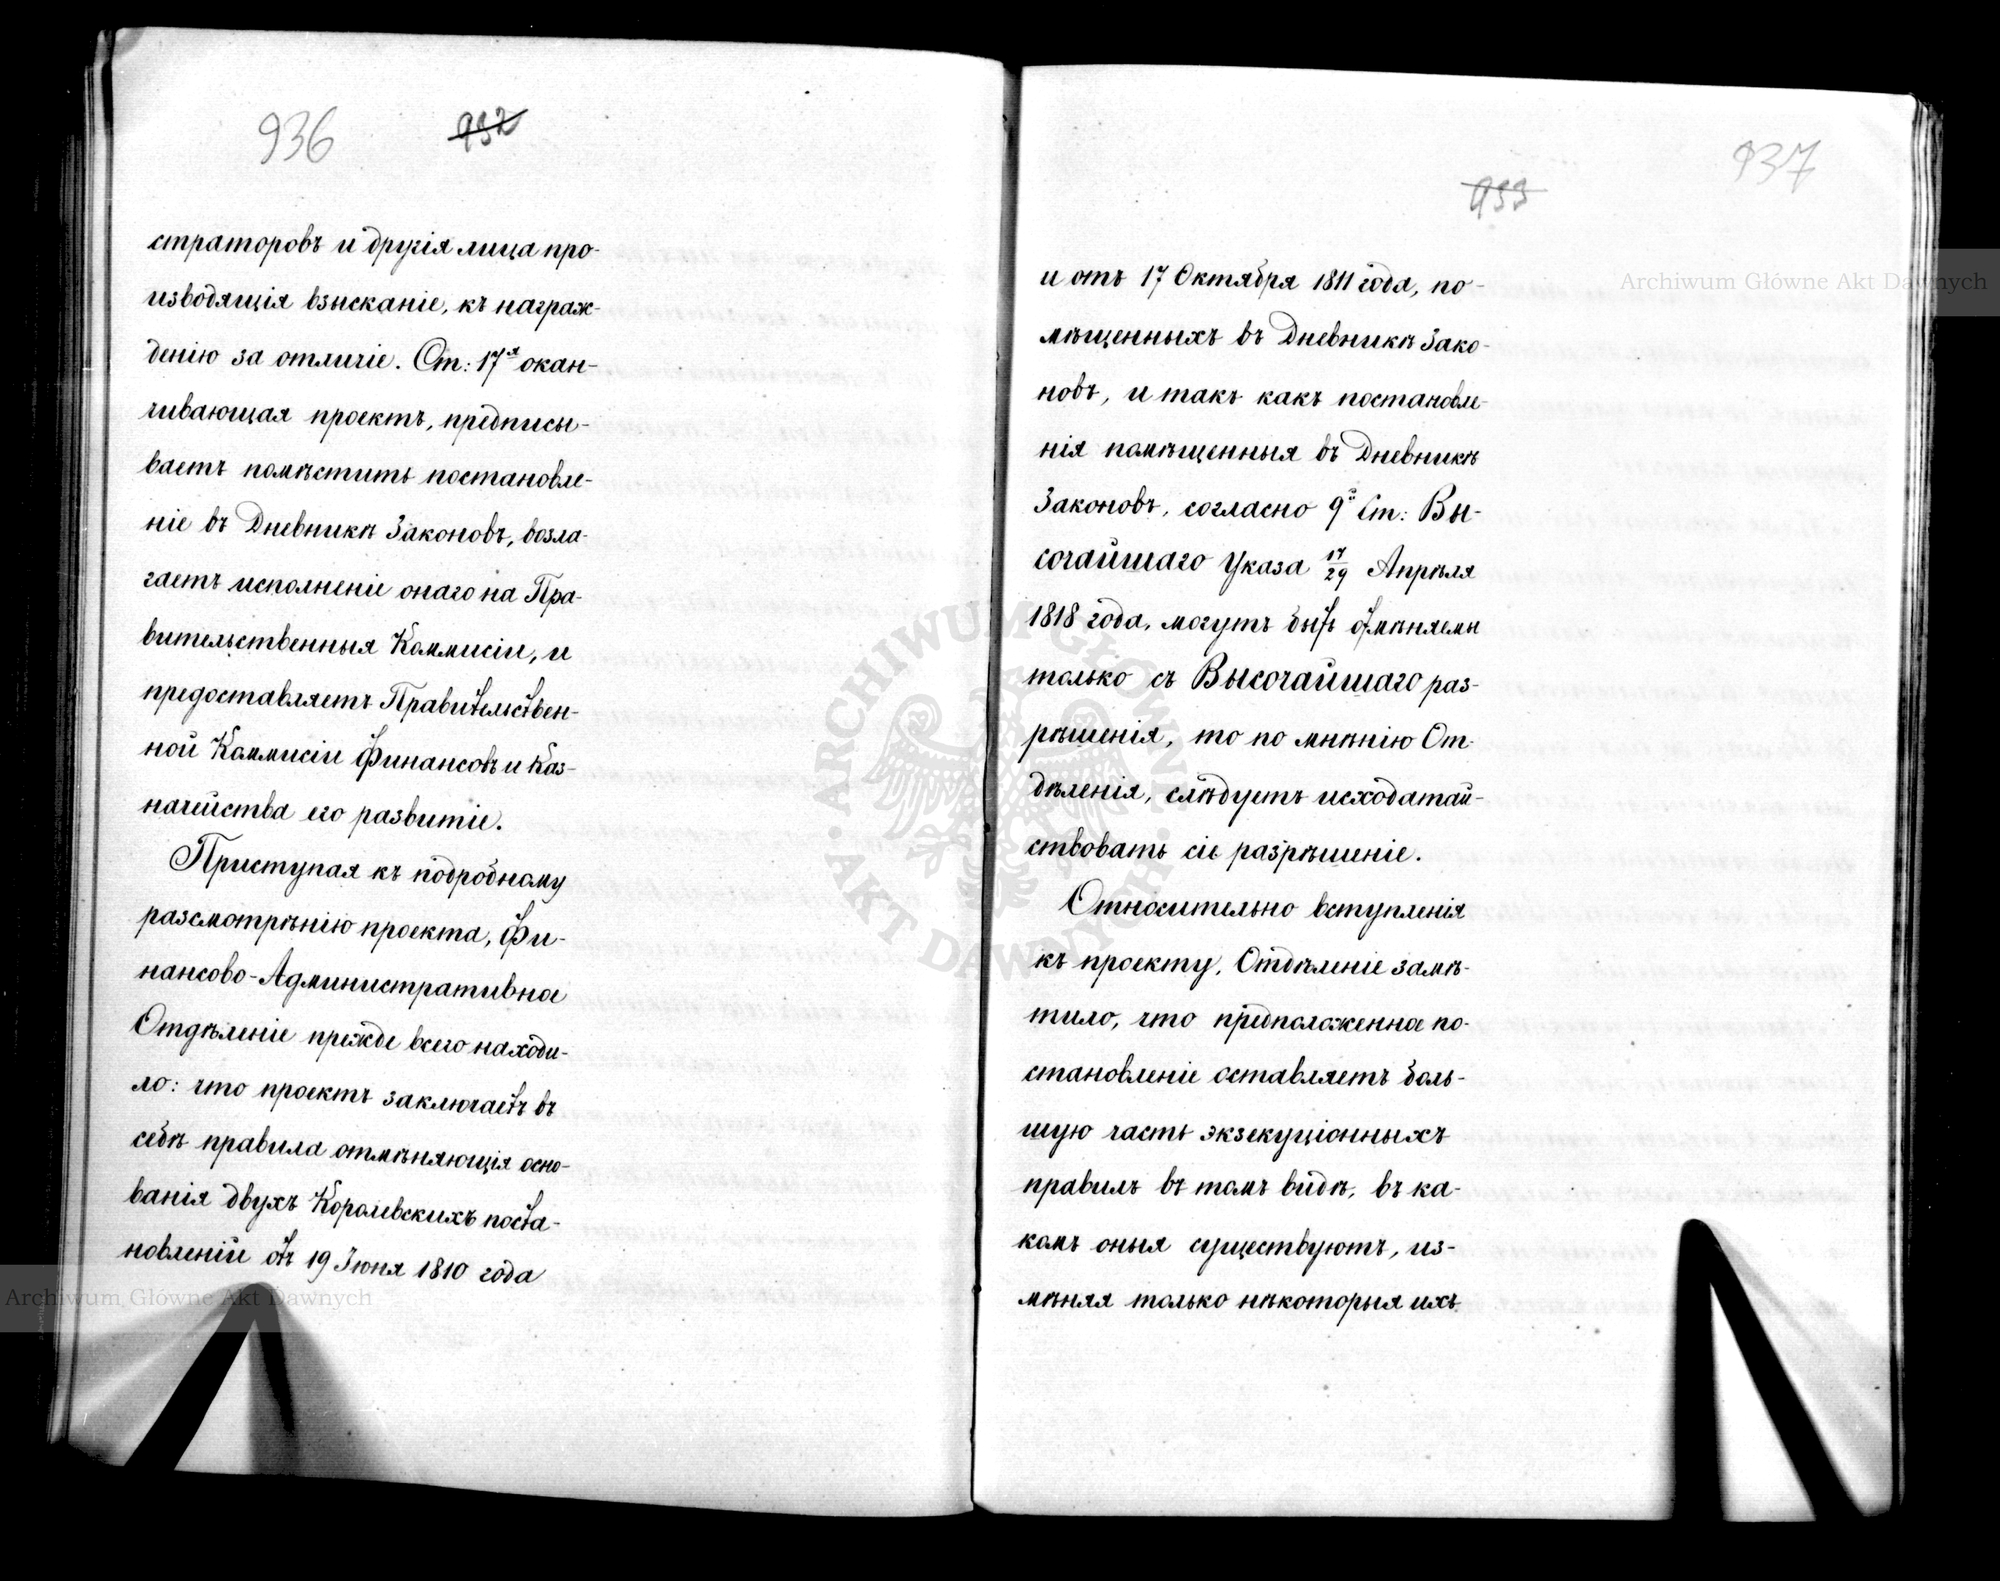 936 932
страторовъ и другія лица про-
изводящія взысканіе, къ награж-
денію за отличіе. Ст: 17я окан-
чивающая проектъ, предписы-
ваетъ помѣстить постановле-
ніе въ Дневникѣ Законовъ, возла-
гаетъ исполненіе онаго на Пра-
вительственныя Коммисіи, и
предоставляетъ Правительствен-
ной Коммисіи Финансовъ и Каз-
начейства его развитіе.
Приступая къ подробному
разсмотрѣнію проекта, Фи-
нансово-Административное
Отдѣленіе прежде всего находи-
ло: что проектъ заключаетъ въ
себѣ правила отмѣняющія осно-
ванія двухъ Королевскихъ поста-
новленій отъ 19 Іюня 1810 года
937
933
и отъ 17 Октября 1811 года, по-
мѣщенныхъ въ Дневникѣ Зако-
новъ, и такъ какъ постановле-
нія помѣщенныя въ Дневникѣ
Законовъ, согласно 9й Ст: Вы-
сочайшаго Указа 17/29 Апрѣля
1818 года, могутъ быть отмѣняемы
только съ Высочайшаго раз-
рѣшенія, то по мнѣнію От-
дѣленія, слѣдуетъ исходатай-
ствовать сіе разрѣшеніе.
Относительно вступленія
къ проекту, Отдѣленіе замѣ-
тило, что предположенное по-
становленіе оставляетъ боль-
шую часть экзекуціонныхъ
правилъ въ томъ видѣ, въ ка-
комъ оныя существуютъ, из-
мѣняя только нѣкоторыя ихъ
Archiwum Główne Akt Dawnych
ARCHIWUM GŁÓWNE AKT DAWNYCH
Archiwum Główne Akt Dawnych